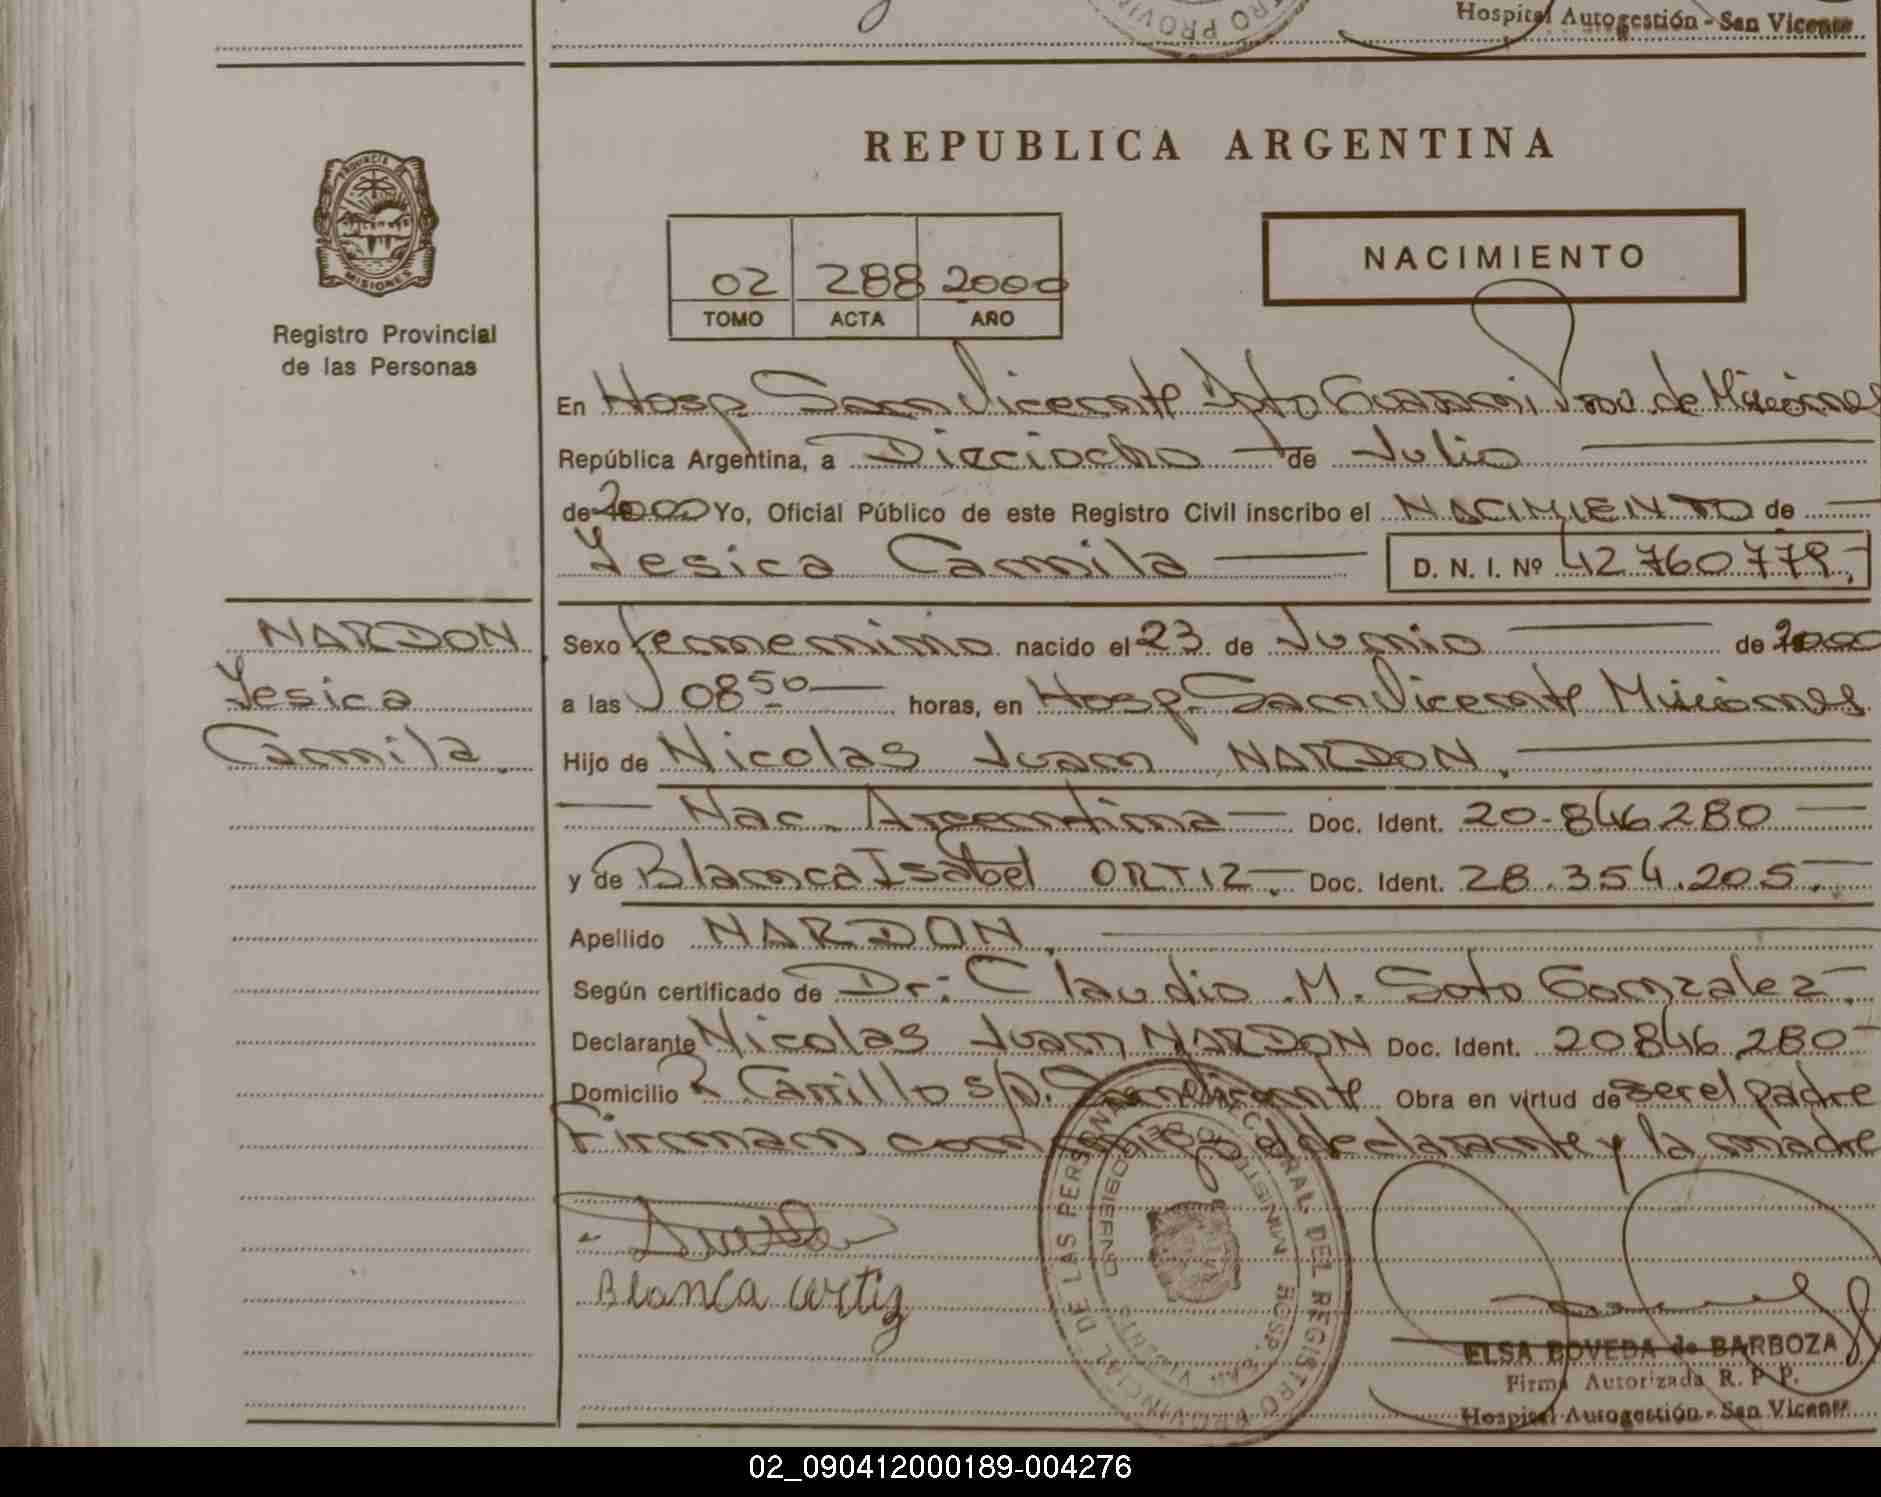 Hospital Autogestión - San Vicente
REPUBLICA ARGENTINA
PROVINCIA DE
MISIONES
Registro Provincial
de las Personas
02 288 2000
TOMO ACTA AÑO
NACIMIENTO
En Hosp San Vicente Dpto Guarani Prov. de Misiones
República Argentina, a Dieciocho de Julio
de 2000 Yo, Oficial Público de este Registro Civil inscribo el NACIMIENTO de
Yesica Camila D. N. I. Nº 42760779
NARDON
Yesica
Camila.
Sexo femenino nacido el 23 de Junio de 2000
a las 08 50 horas, en Hosp. San Vicente Misiones
Hijo de Nicolas Juan NARDON.
Nac. Argentina Doc. Ident. 20.846.280
y de Blanca Isabel ORTIZ. Doc. Ident. 28.354.205.
Apellido NARDON.
Según certificado de Dr: Claudio M. Soto Gonzalez.
Declarante Nicolas Juan NARDON Doc. Ident. 20846.280
Domicilio R Carrillo s/n. San Vicente Obra en virtud de ser el padre
Firman conmigo el declarante y la madre
Blanca ortiz
PROVINCIAL DEL REGISTRO PROVINCIAL DE LAS PERSONAS
MINISTERIO DE GOBIERNO
HOSP. SAN VICENTE
ELSA BOVEDA de BARBOZA
Firma Autorizada R. P. P.
Hospital Autogestión - San Vicente
02_090412000189-004276